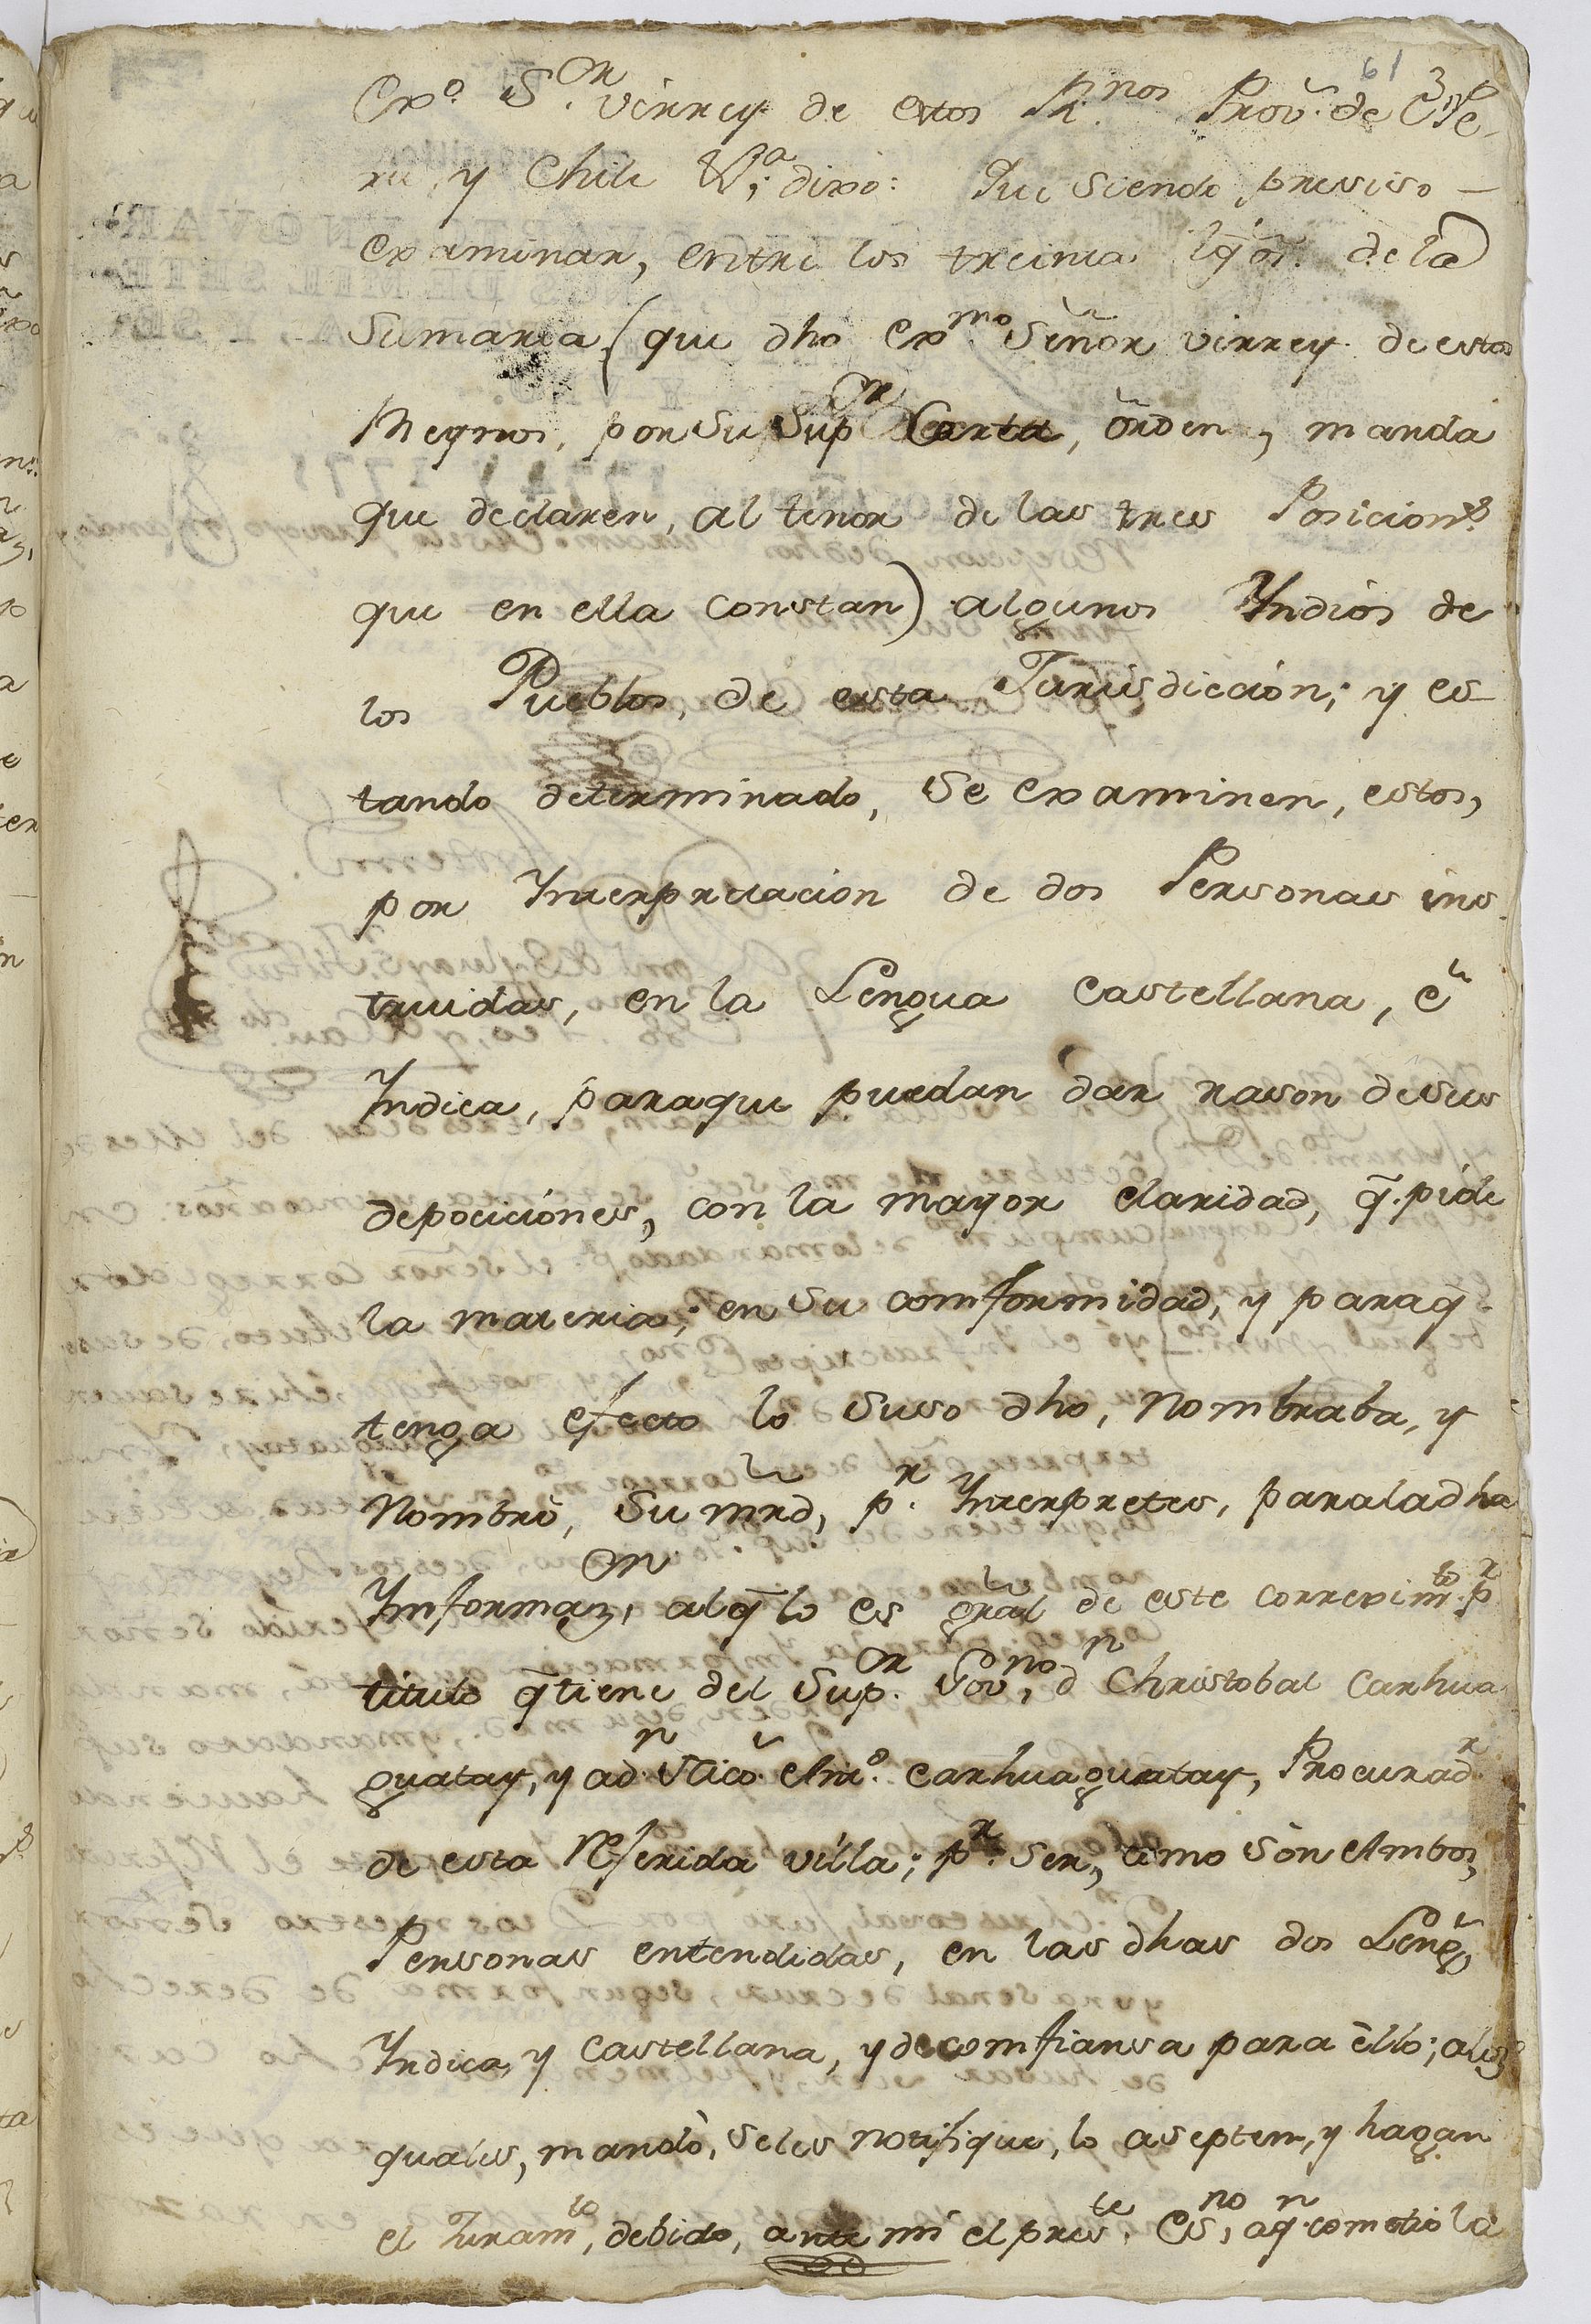 61 3
Exo. S.or Virrey de estos R.nos Prov.s de el Pe-
ru, y Chile &.a; dixo: Que siendo presiso -
examinar, entre los treinta tgõs. de la
Sumaria, (que dho Exmo. Señor Virrey de estos
Reynos, por su Sup.or Carta, orden, manda
que declaren, al tenor de las tres Posicion.s
que en ella constan) algunos Yndios de
los Pueblos, de esta Jurisdiccion; y es-
tando determinado, se examinen, estos,
por Ynterpretacion de dos Personas ins-
truidas, en la Lengua Castellana, è
Yndica, paraque puedan dar rason desus
deposiciónes, con la mayor claridad, q̃. pide
la materia; en su comformidad, y paraq̃.
tenga efecto lo suso dho, Nombraba, y
Nombrò, su mrd, p.r Ynterpretes, paraladha
Ynformaz.on, alq̃ lo es gral de este correximto. p.r
titulo q̃ tiene del Sup.or Gov.no, d.n Christobal Carhua
guatay, y ad.n Vtico. Anto. Carhuaguatay, Procurad.r
de esta Referida villa; p.r ser, como sòn Ambos,
Personas entendidas, en las dhas dos Leng.s,
Yndica, y Castellana, y de comfiansa para èllo; alos
quales, mandò, seles notifique, lo asepten, y hagan
el Juramto, debido, ante mi el preste. Es.no, aq.n cometiò la